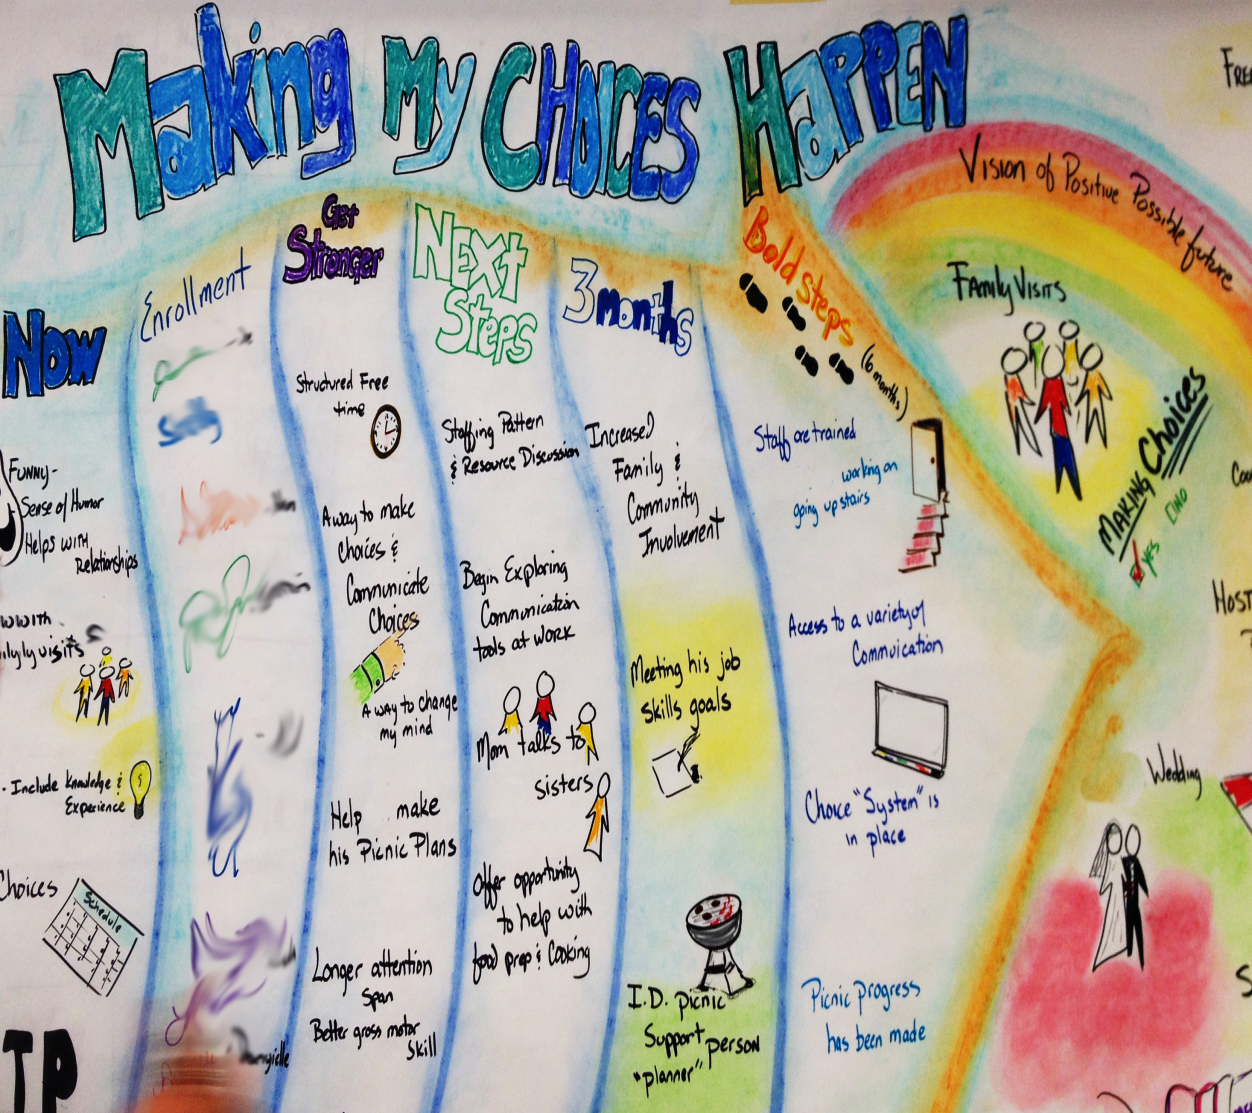 Making My CHOICES HAPPEN
NOW
FUNNY-
Sense of Humor
Helps with
Relationships
visits
- Include knowledge &
Experience
Choices
Schedule
Enrollment
Get
Stronger
Structured Free
time
A way to make
choices &
Communicate
Choices
A way to change
my mind
Help make
his Picnic Plans
Longer attention
Span
Better gross motor
Skill
NEXT
Steps
Staffing Pattern
& Resource Discussion
Begin Exploring
Communication
tools at work
Mom talks to
sisters
Offer opportunity
to help with
food prep & Cooking
3
months
Increased
Family &
Community
Involvement
Meeting his job
skills goals
I.D. picnic
Support person
"planner"
Bold steps
(6 months)
Staff are trained
working on
going up stairs
Access to a variety of
Commuication
Choice "System" is
in place
Picnic progress
has been made
Vision of Positive Possible future
Family Visits
MAKING Choices
YES
NO
Wedding